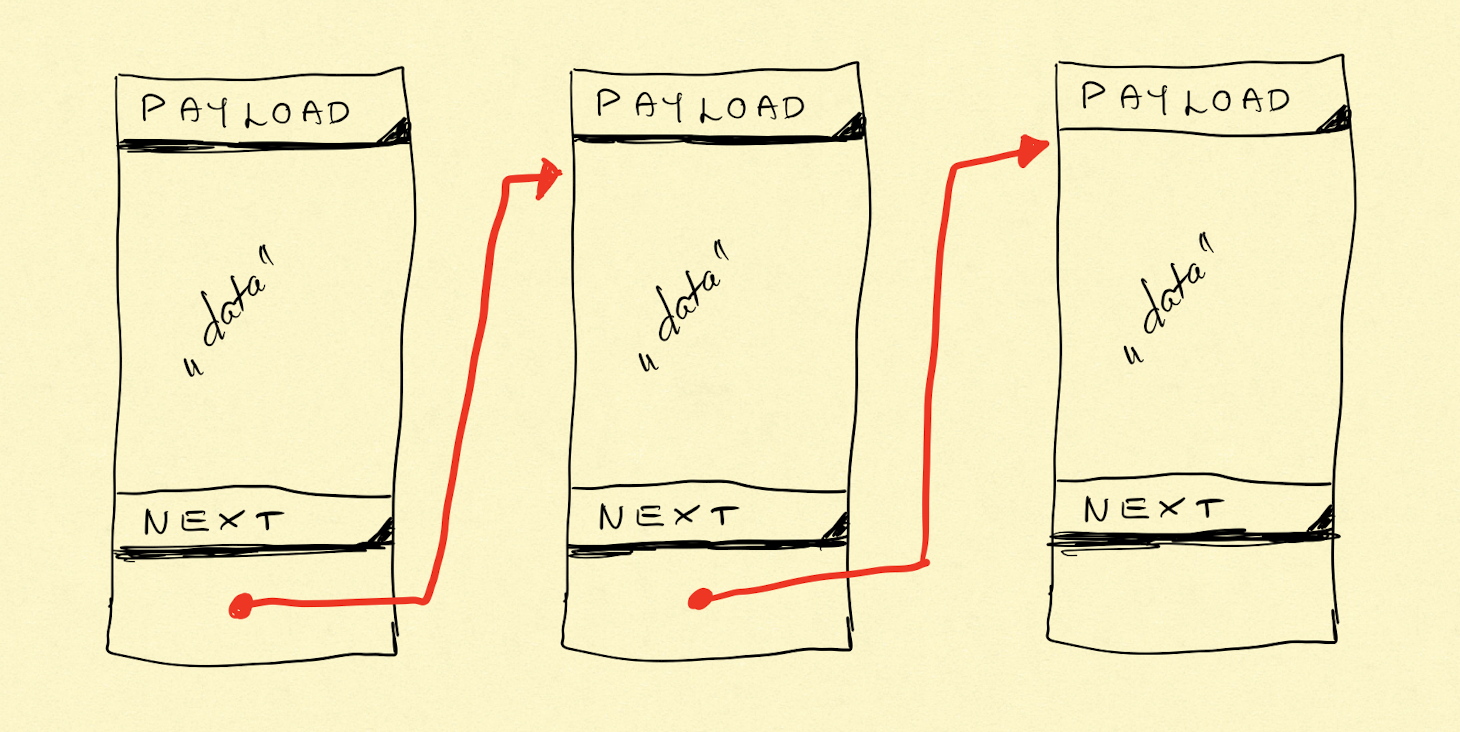 PAYLOAD
„data“
NEXT
PAYLOAD
„data“
NEXT
PAYLOAD
„data“
NEXT